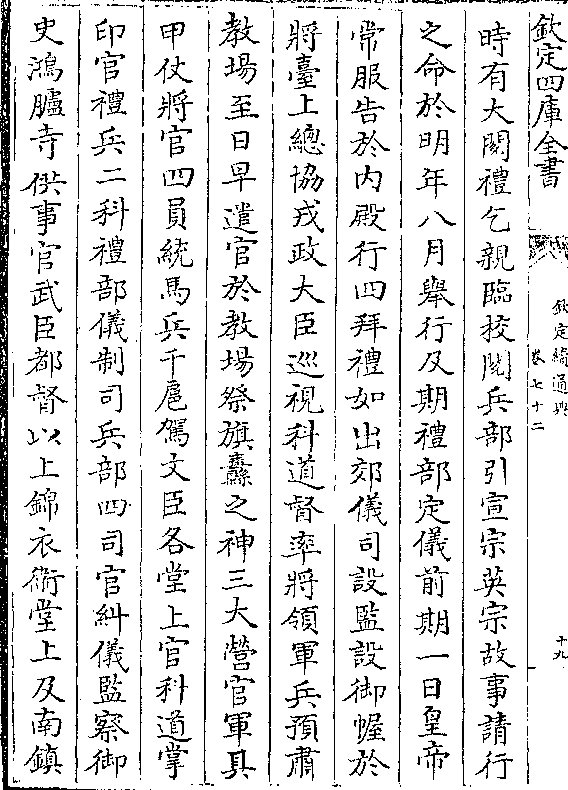 欽定四庫全書
欽定續通典
卷七十二
十九
時有大閱禮乞親臨校閱兵部引宣宗英宗故事請行
之命於明年八月舉行及期禮部定儀前期一日皇帝
常服告於内殿行四拜禮如出郊儀司設監設御幄於
將臺上總協戎政大臣巡視科道督率將領軍兵預肅
教場至日早遣官於教場祭旗纛之神三大營官軍具
甲仗將官四員統馬兵千扈駕文臣各堂上官科道掌
印官禮兵二科禮部儀制司兵部四司官糾儀監察御
史鴻臚寺供事官武臣都督以上錦衣衞堂上及南鎮